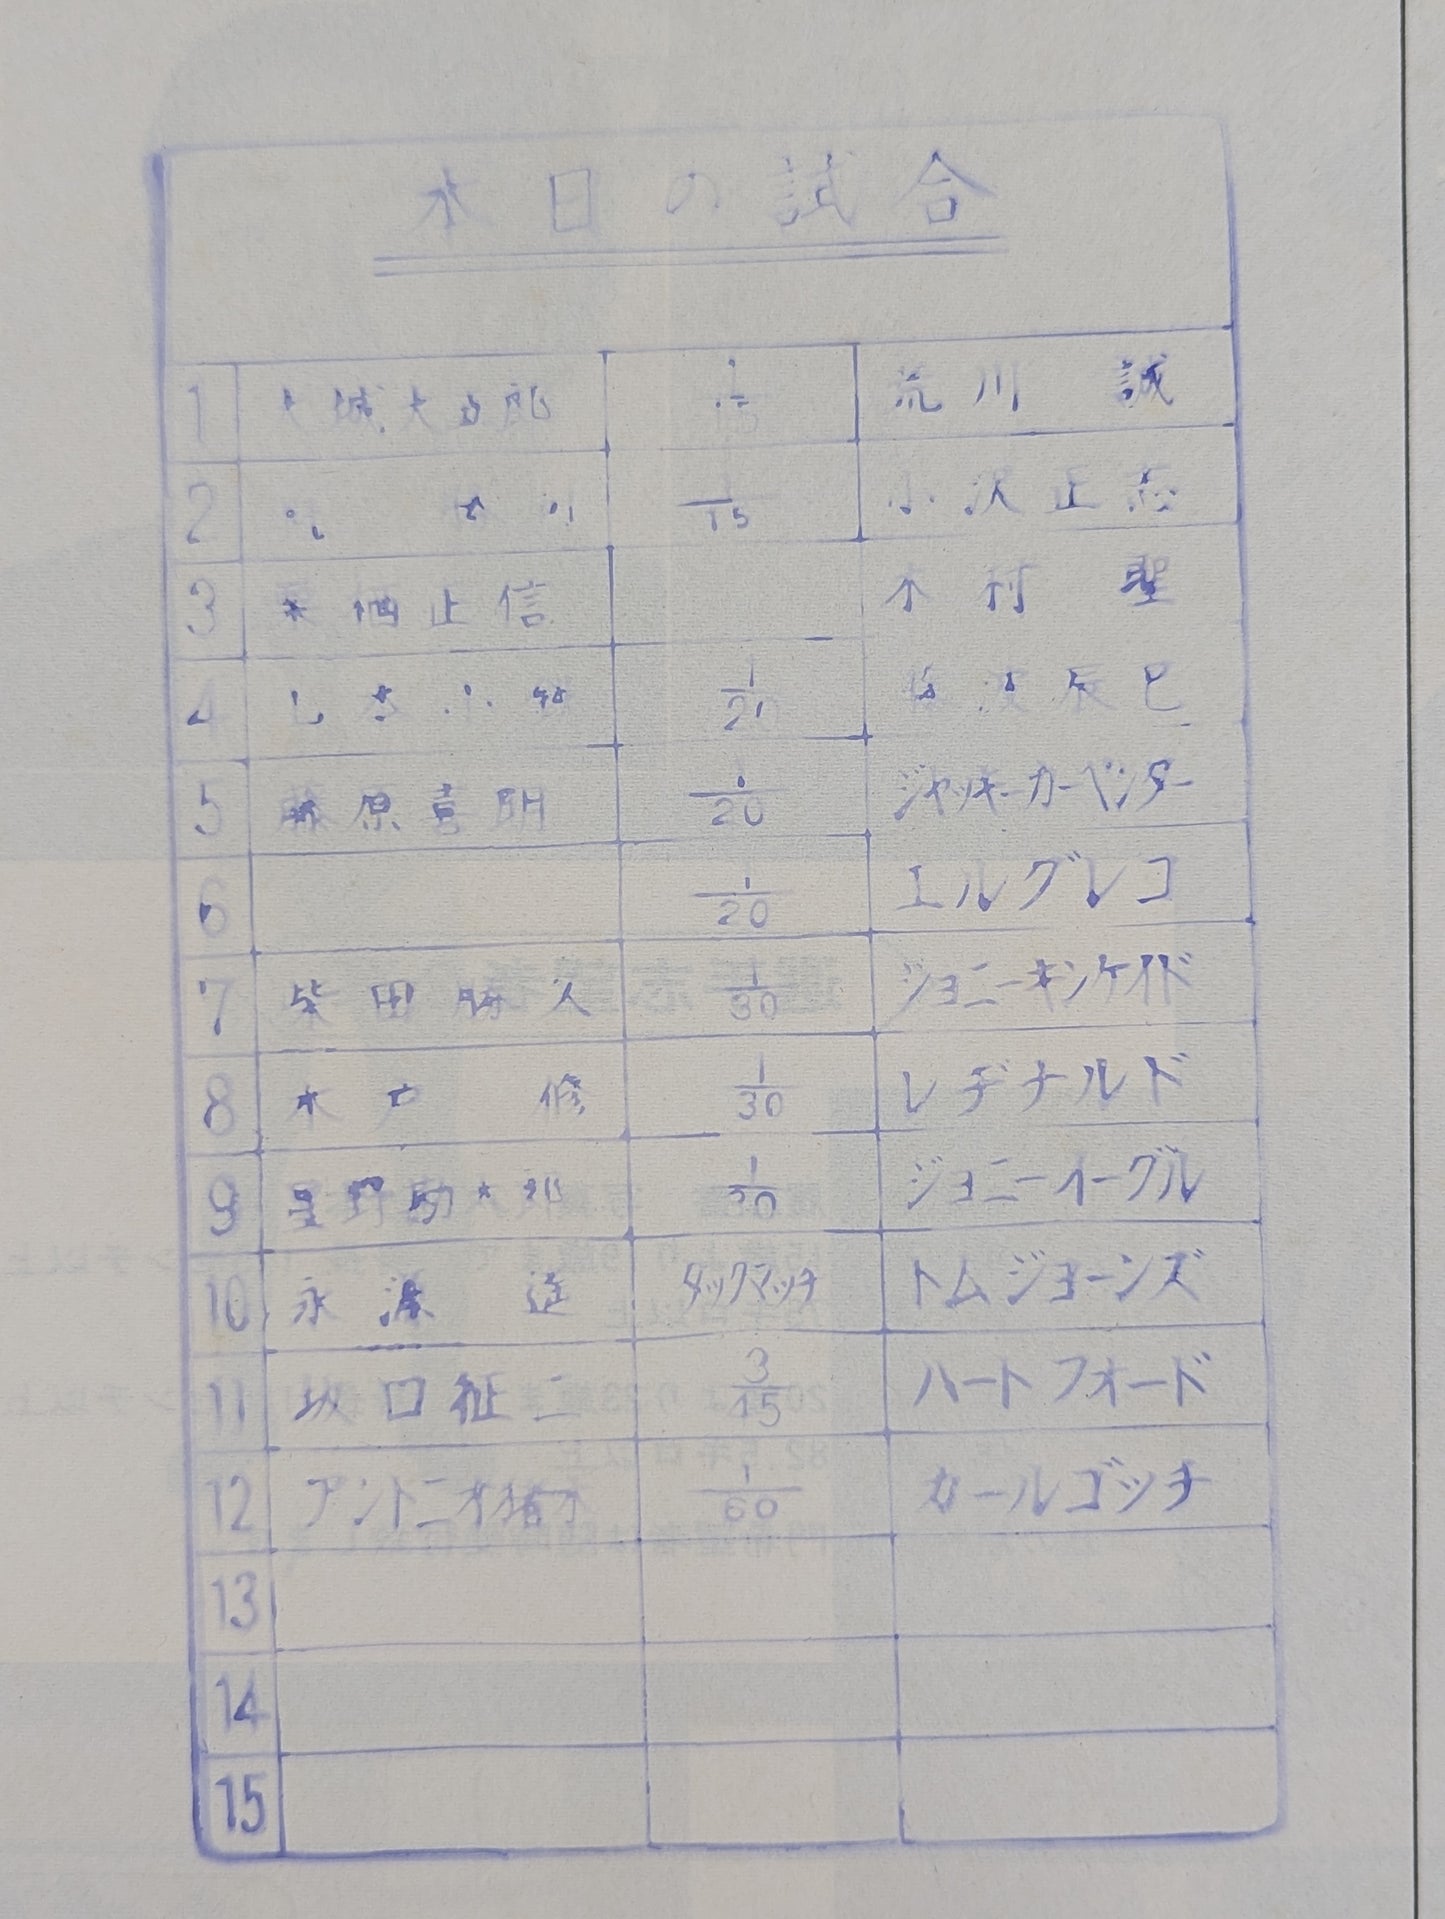 本日の試合
1 大城大五郎 1/15 荒川 誠
2 1/15 小沢正志
3 栗栖正信 木村 聖
4 1/20 藤波辰巳
5 藤原喜明 1/20 ジャッキーカーペンター
6 1/20 エルグレコ
7 柴田勝久 1/30 ジョニーキンケイド
8 木戸 修 1/30 レヂナルド
9 星野勘太郎 1/30 ジョニーイーグル
10 永源 遥 タッグマッチ トムジョーンズ
11 坂口征二 3/45 ハートフォード
12 アントニオ猪木 1/60 カールゴッチ
13
14
15